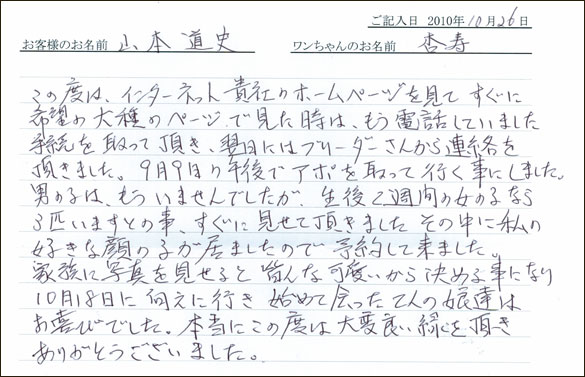 ご記入日 2010年10月26日
お客様のお名前 山本 道史 ワンちゃんのお名前 杏寿
この度は、インターネット貴社のホームページを見てすぐに
希望の犬種のページで見た時は、もう電話していました
手続を取って頂き、翌日にはブリーダーさんから連絡を
頂きました。9月9日の午後でアポを取って行く事にしました。
男の子は、もういませんでしたが、生後2週間の女の子なら
3匹いますとの事、すぐに見せて頂きました その中に私の
好きな顔の子が居ましたので予約して来ました。
家族に写真を見せると皆んな可愛いから決める事になり
10月18日に伺えに行き 始めて会った2人の娘達は
お喜びでした。本当にこの度は大変良い縁を頂き
ありがとうございました。